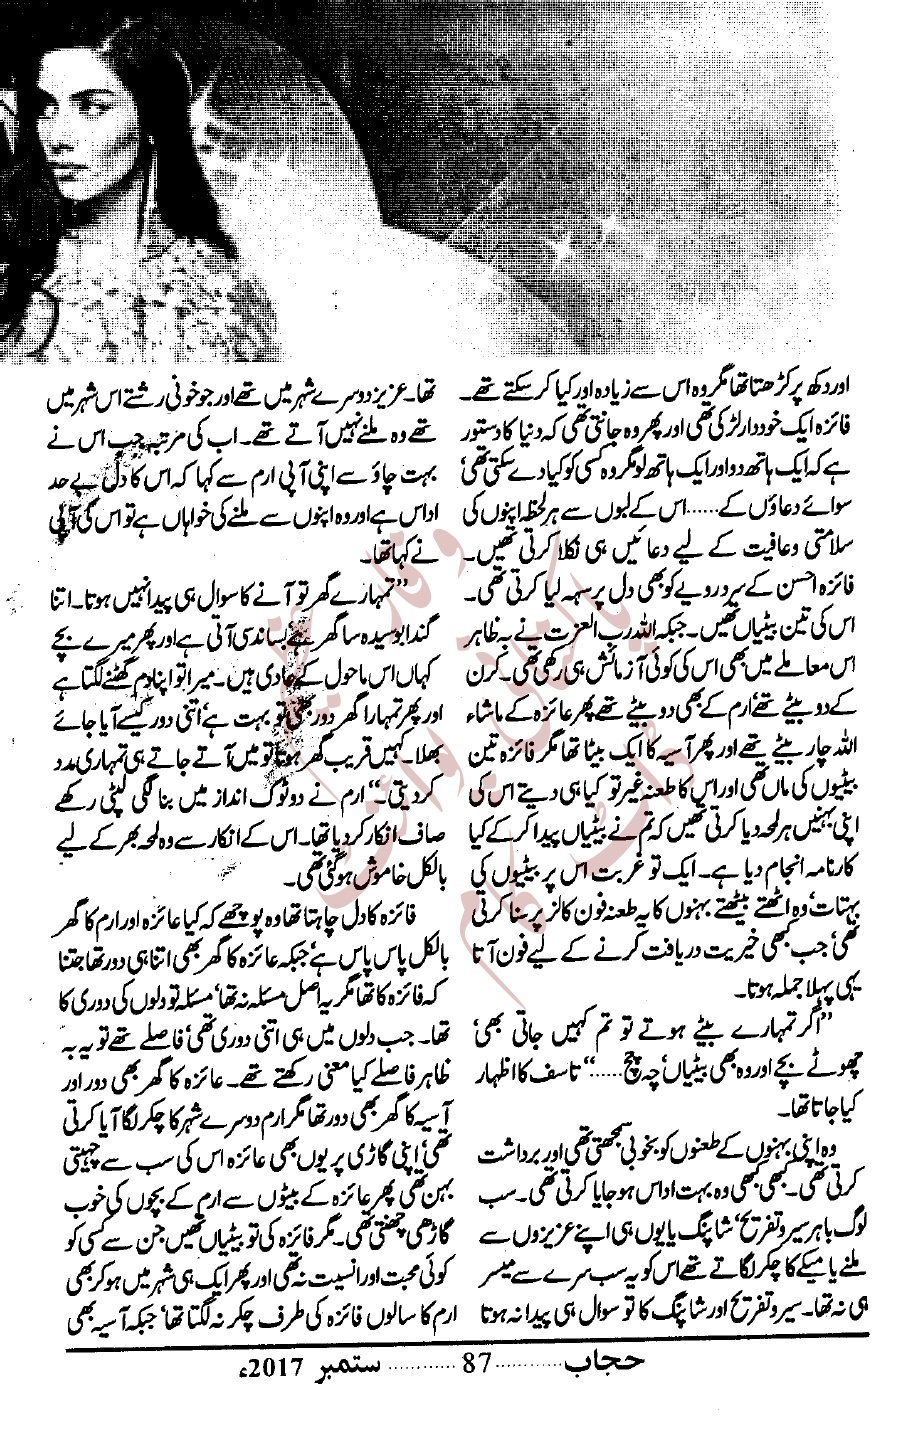 اور دکھ پر کڑھتا تھا مگر وہ اس سے زیادہ اور کیا کر سکتے تھے۔
فائزہ ایک خوددار لڑکی تھی اور پھر وہ جانتی تھی کہ دنیا کا دستور
ہے کہ ایک ہاتھ دو اور ایک ہاتھ لو مگر وہ کسی کو کیا دے سکتی تھی
سوائے دعاؤں کے...... اس کے لبوں سے ہر لحظہ اپنوں کی
سلامتی وعافیت کے لیے دعائیں ہی نکلا کرتی تھیں۔
فائزہ احسن کے سرد رویے کو بھی دل پر سہہ لیا کرتی تھی۔
اس کی تین بیٹیاں تھیں۔ جبکہ اللہ رب العزت نے بہ ظاہر
اس معاملے میں بھی اس کی کوئی آزمائش ہی رکھی تھی۔ کرن
کے دو بیٹے تھے، ارم کے بھی دو بیٹے تھے پھر عائزہ کے ماشاء
اللہ چار بیٹے تھے اور پھر آسیہ کا ایک بیٹا تھا مگر فائزہ تین
بیٹیوں کی ماں تھی اور اس کا طعنہ غیر تو کیا ہی دیتے اس کی
اپنی بہنیں ہر لمحہ دیا کرتی تھیں کہ تم نے بیٹیاں پیدا کر کے کیا
کارنامہ انجام دیا ہے۔ ایک تو غربت اس پر بیٹیوں کی
بہتات، وہ اٹھتے بیٹھتے بہنوں کا یہ طعنہ فون کالز پر سنا کرتی
تھی، جب کبھی خیریت دریافت کرنے کے لیے فون آتا
یہی پہلا جملہ ہوتا۔
”اگر تمہارے بیٹے ہوتے تو تم کہیں جاتی بھی،
چھوٹے بچے اور وہ بھی بیٹیاں، چہ چچ......“ تاسف کا اظہار
کیا جاتا تھا۔
وہ اپنی بہنوں کے طعنوں کو بخوبی سمجھتی تھی اور برداشت
کرتی تھی۔ کبھی کبھی وہ بہت اداس ہو جایا کرتی تھی۔ سب
لوگ باہر سیر و تفریح، شاپنگ یا یوں ہی اپنے عزیزوں سے
ملنے یا میکے کا چکر لگاتے تھے اس کو یہ سب سرے سے میسر
ہی نہ تھا۔ سیر و تفریح اور شاپنگ کا تو سوال ہی پیدا نہ ہوتا
تھا۔ عزیز دوسرے شہر میں تھے اور جو خونی رشتے اس شہر میں
تھے وہ ملنے نہیں آتے تھے۔ اب کی مرتبہ جب اس نے
بہت چاؤ سے اپنی آپی ارم سے کہا کہ اس کا دل بے حد
اداس ہے اور وہ اپنوں سے ملنے کی خواہاں ہے تو اس کی آپی
نے کہا تھا۔
”تمہارے گھر تو آنے کا سوال ہی پیدا نہیں ہوتا۔ اتنا
گندا بوسیدہ سا گھر ہے، بساندسی آتی ہے اور پھر میرے بچے
کہاں اس ماحول کے عادی ہیں۔ میرا تو اپنا دم گھٹنے لگتا ہے
اور پھر تمہارا گھر دور بھی تو بہت ہے، اتنی دور کیسے آیا جائے
بھلا۔ کہیں قریب گھر ہوتا تو میں آتے جاتے ہی تمہاری مدد
کر دیتی۔“ ارم نے دو ٹوک انداز میں بنا لگی لپٹی رکھے
صاف انکار کر دیا تھا۔ اس کے انکار سے وہ لمحہ بھر کے لیے
بالکل خاموش ہو گئی تھی۔
فائزہ کا دل چاہتا تھا وہ پوچھے کہ کیا عائزہ اور ارم کا گھر
بالکل پاس پاس ہے، جبکہ عائزہ کا گھر بھی اتنا ہی دور تھا جتنا
کہ فائزہ کا تھا مگر یہ اصل مسئلہ نہ تھا، مسئلہ تو دلوں کی دوری کا
تھا۔ جب دلوں میں ہی اتنی دوری تھی، فاصلے تھے تو یہ بہ
ظاہر فاصلے کیا معنی رکھتے تھے۔ عائزہ کا گھر بھی دور اور
آسیہ کا گھر بھی دور تھا مگر ارم دوسرے شہر کا چکر لگا آیا کرتی
تھی، اپنی گاڑی پر یوں بھی عائزہ اس کی سب سے چہیتی
بہن تھی پھر عائزہ کے بیٹوں سے ارم کے بچوں کی خوب
گاڑھی چھنتی تھی۔ مگر فائزہ کی تو بیٹیاں تھیں جن سے کسی کو
کوئی محبت اور انسیت نہ تھی اور پھر ایک ہی شہر میں ہو کر بھی
ارم کا سالوں فائزہ کی طرف چکر نہ لگتا تھا، جبکہ آسیہ بھی
حجاب ........... 87 ........... ستمبر 2017ء